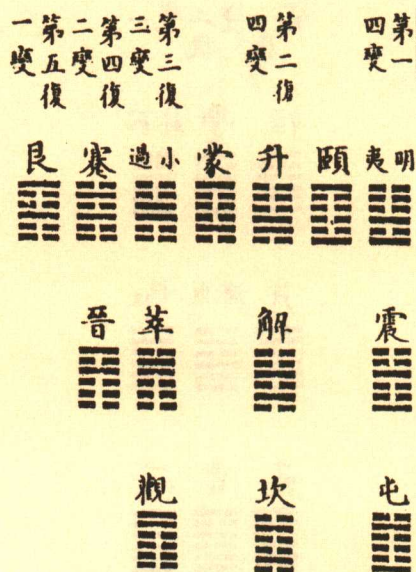 第一
四變
第二復
四變
第三復
三變
第四復
二變
第五復
一變
明夷
頤
升
蒙
小過
蹇
艮
震
解
萃
晉
屯
坎
觀